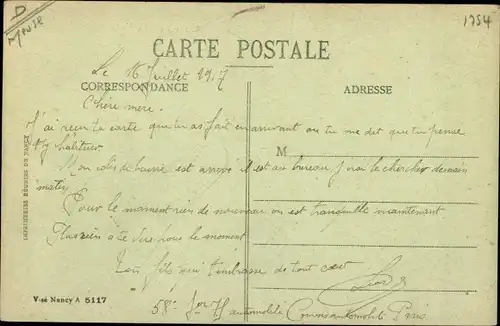 D
Meuse
1754
CARTE POSTALE
Le 16 Juillet 1917
CORRESPONDANCE
ADRESSE
Chère mère.
J'ai reçu ta carte que tu as fait en arrivant ou tu me dit que tu pense
t'y habituer.
M
Mon colis de beurre est arrivé il est au bureau j'irai le chercher demain
matin
Pour le moment rien de nouveau on est tranquille maintenant
Plus rien à te dire pour le moment
Ton fils qui t'embrasse de tout cœur
IMPRIMERIES RÉUNIES DE NANCY
Visé Nancy A 5117
58e automobile Paris